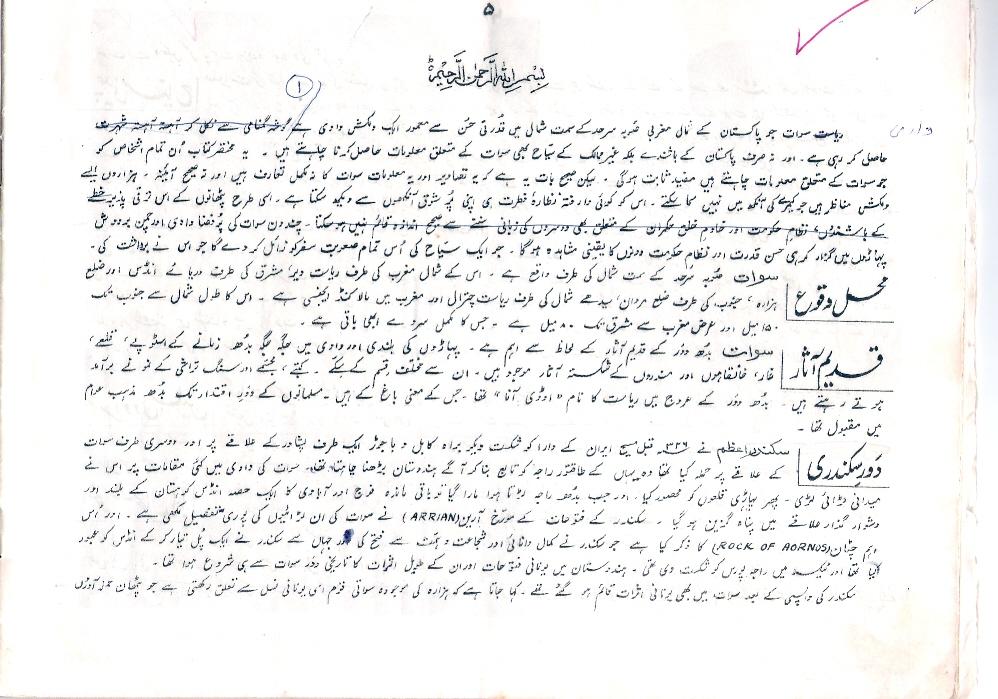 ۵
بسم اللہ الرحمن الرحیم
۱
ریاست سوات جو پاکستان کے شمال مغربی صوبہ سرحد کے سمت شمال میں قدرتی حسن سے معمور ایک دلکش وادی ہے گوشہ گمنامی سے نکل کر آہستہ آہستہ شہرت
حاصل کر رہی ہے ۔ اور نہ صرف پاکستان کے باشندے بلکہ غیر ممالک کے سیاح بھی سوات کے متعلق معلومات حاصل کرنا چاہتے ہیں ۔ یہ مختصر کتاب اُن تمام اشخاص کو
جو سوات کے متعلق معلومات چاہتے ہیں مفید ثابت ہوگی ۔ لیکن صحیح بات یہ ہے کہ یہ تصاویر اور یہ معلومات سوات کا نہ مکمل تعارف ہیں اور نہ صحیح آئینہ ۔ ہزاروں ایسے
دلکش مناظر ہیں جو کیمرے کی آنکھ میں نہیں سما سکتے ۔ اس کو کوئی وارفتہ نظارۂ فطرت ہی اپنی پُر شوق آنکھوں سے دیکھ سکتا ہے ۔ اسی طرح پٹھانوں کے اس ترقی پذیر خطے
کے باشندوں، نظامِ حکومت اور خادمِ خلق حکمران کے متعلق بھی دوسروں کی زبانی سننے سے صحیح اندازہ قائم نہیں ہو سکتا ۔ چند دن سوات کی پُر فضا وادی اور
پہاڑوں میں گزار کر ہی حسن قدرت اور نظام حکومت دونوں کا یقینی مشاہدہ ہوگا ۔ جو ایک سیاح کی اُس تمام صعوبت سفر کو زائل کر دے گا جو اس نے برداشت کی ۔
محل وقوع
سوات صوبہ سرحد کے سمت شمال کی طرف واقع ہے ۔ اس کے شمال مغرب کی طرف ریاست دیر، مشرق کی طرف دریائے انڈس اور ضلع
ہزارہ، جنوب کی طرف ضلع مردان، سیدھے شمال کی طرف ریاست چترال اور مغرب میں مالاکنڈ ایجنسی ہے ۔ اس کا طول شمال سے جنوب تک
۱۵۰ میل اور عرض مغرب سے مشرق تک ۸۰ میل ہے ۔ جس کا مکمل سروے ابھی باقی ہے ۔
قدیم آثار
سوات بدھ دور کے قدیم آثار کے لحاظ سے اہم ہے ۔ پہاڑوں کی بلندی اور وادی میں جگہ جگہ بدھ زمانے کے اسٹوپے، قلعے،
غار، خانقاہوں اور مندروں کے شکستہ آثار موجود ہیں ۔ ان سے مختلف قسم کے سکے ۔ کتبے، مجسمے اور سنگ تراشی کے نمونے برآمد
ہوتے رہتے ہیں ۔ بدھ دور کے عروج میں ریاست کا نام "اوڈی آنا" تھا ۔ جس کے معنی باغ کے ہیں ۔ مسلمانوں کے دورِ اقتدار تک بدھ مذہب عوام
میں مقبول تھا ۔
دَور سکندری
سکندر اعظم نے ۳۲۶ قبل مسیح ایران کے دارا کو شکست دیکر براہ کابل و باجوڑ ایک طرف پشاور کے علاقے پر اور دوسری طرف سوات
کے علاقے پر حملہ کیا تھا وہ یہاں کے طاقتور راجہ کو تابع بنا کر آگے ہندوستان بڑھنا چاہتا تھا۔ سوات کی وادی میں کئی مقامات پر اس نے
میدانی لڑائی لڑی ۔ پھر پہاڑی قلعوں کو محصور کیا ۔ اور جب بدھ راجہ لڑتا ہوا مارا گیا تو باقی ماندہ فوج اور آبادی کا ایک حصہ انڈس کوہستان کے بلند اور
دشوار گذار علاقے میں پناہ گزین ہو گیا ۔ سکندر کے فتوحات کے مورخ آرین (ARRIAN) نے سوات کی ان لڑائیوں کی پوری تفصیل لکھی ہے ۔ اور اُس
اہم چٹان (ROCK OF AORNOS) کا ذکر کیا ہے جو سکندر نے کمال دانائی اور شجاعت و ہمت سے فتح کی اور جہاں سے سکندر نے ایک پل تیار کر کے انڈس کو عبور
کیا تھا اور ٹیکسلا میں راجہ پورس کو شکست دی تھی ۔ ہندوستان میں یونانی فتوحات اور ان کے طویل اثرات کا تاریخی دَور سوات سے ہی شروع ہوا تھا ۔
سکندر کی واپسی کے بعد سوات میں بھی یونانی اثرات قائم ہو گئے تھے ۔ کہا جاتا ہے کہ ہزارہ کی موجودہ سواتی قوم اسی یونانی نسل سے تعلق رکھتی ہے جو پٹھان حملہ آوروں